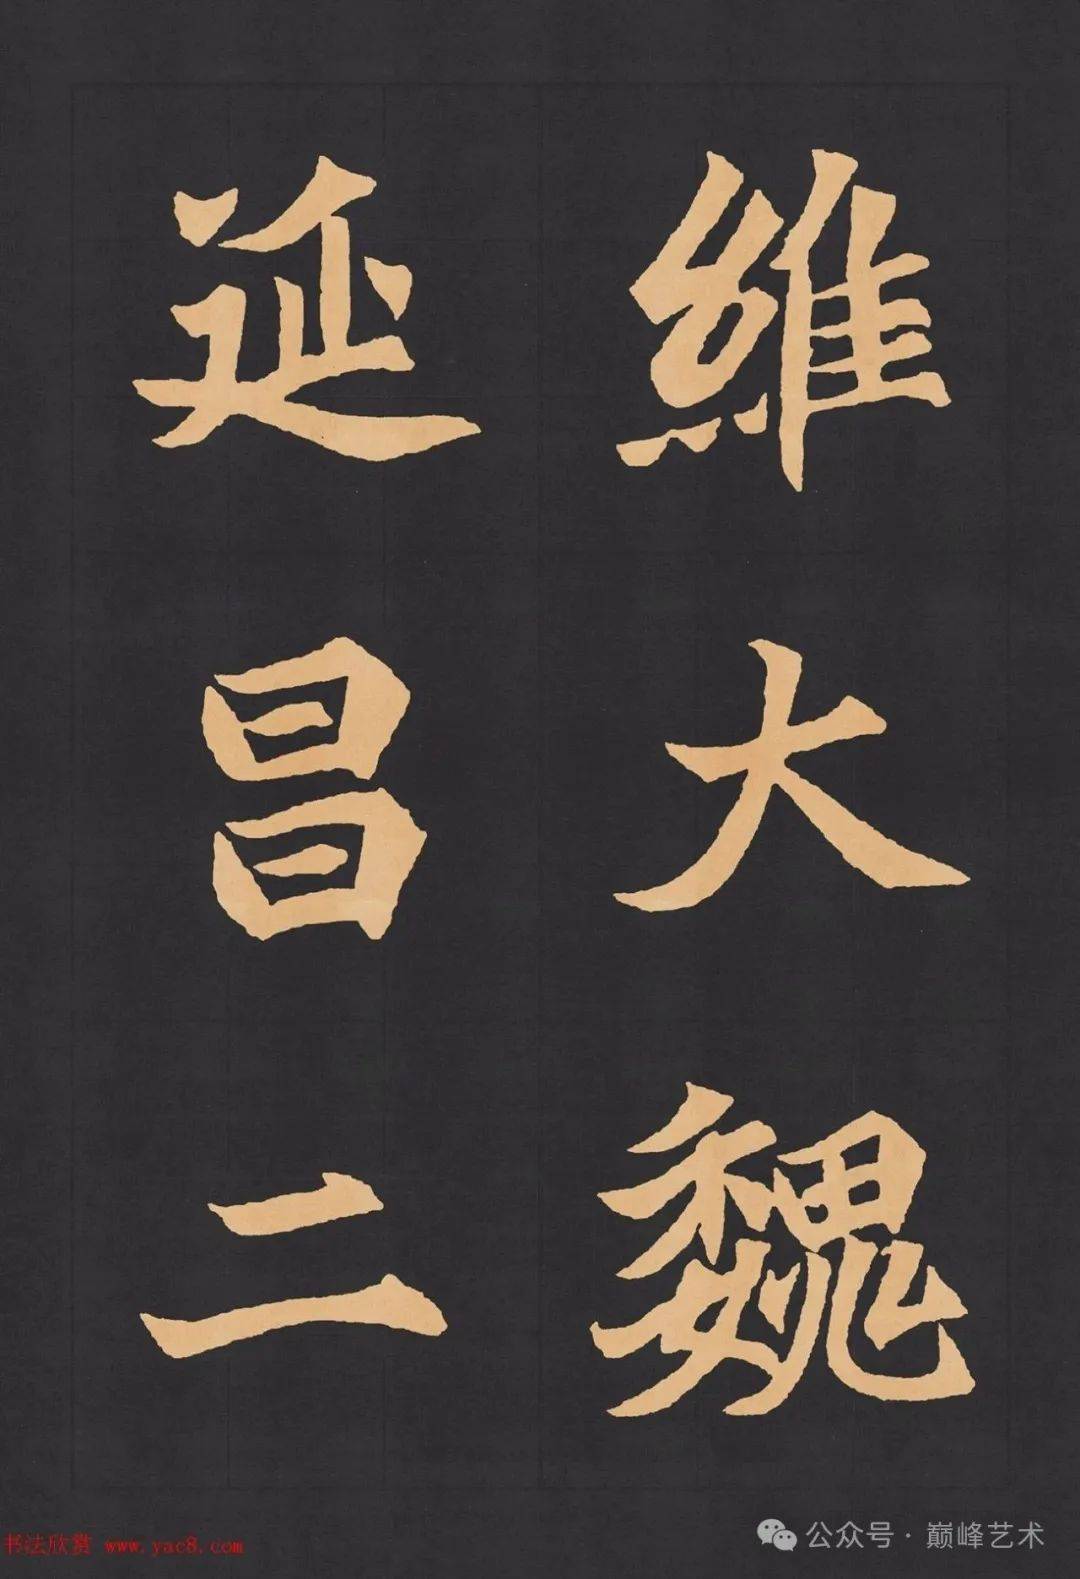 維大魏
延昌二
书法欣赏 www.yac8.com
公众号·巅峰艺术